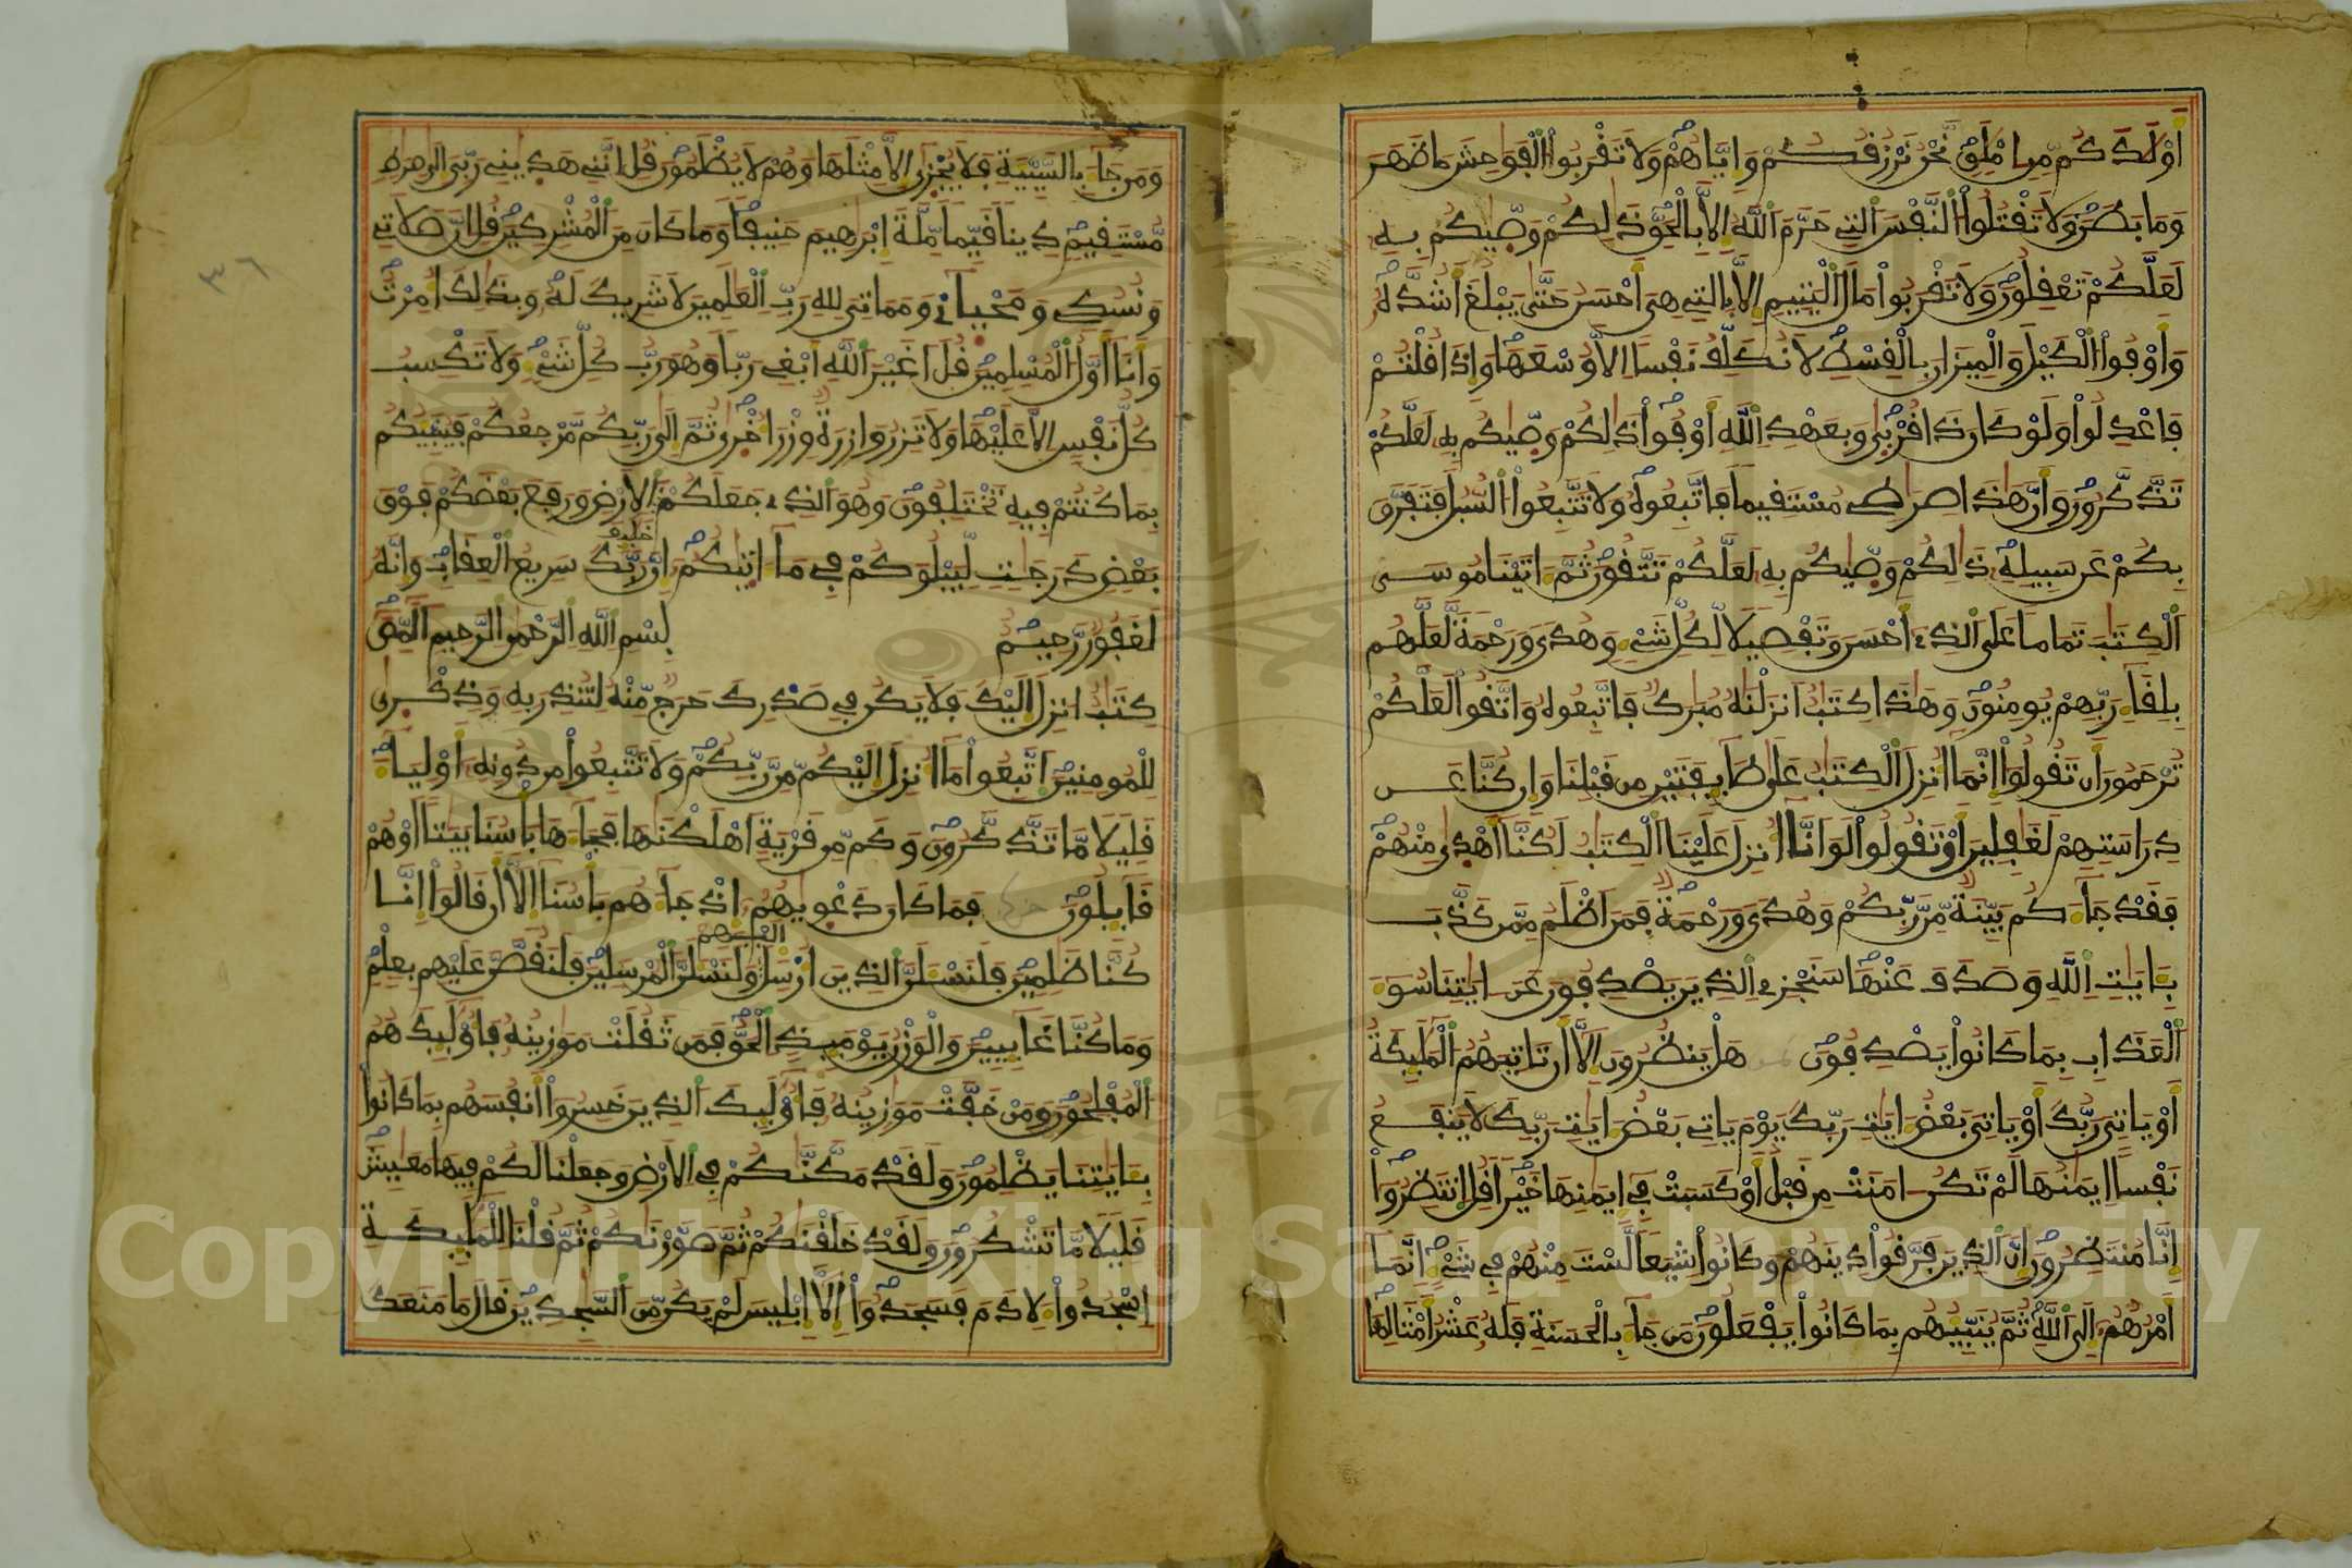 أولدكم من املق نحن نرزفكم وإياهم ولا تفربوا الفوحش ما ظهر
وما بطن ولا تفتلوا النفس التے حرم الله إلا بالحق ذلكم وصيكم به
لعلكم تعفلون ولا تفربوا مال اليتيم إلا بالتے هى أحسن حتى يبلغ أشده
وأوفوا الكيل والميزان بالفسط لا نكلف نفسا إلا وسعها وإذا فلتم
فاعدلوا ولو كان ذا فربى وبعهد الله أوفوا ذلكم وصيكم به لعلكم
تذكرون وأن هذا صرطے مستفيما فاتبعوه ولا تتبعوا السبل فتفرق
بكم عن سبيله ذلكم وصيكم به لعلكم تتفون ثم اتينا موسى
الكتب تماما على الذے أحسن وتفصيلا لكل شےء وهدى ورحمة لعلهم
بلفاء ربهم يومنون وهذا كتب انزلنه مبرك فاتبعوه واتفوا لعلكم
ترحمون أن تفولوا إنما انزل الكتب على طايفتين من فبلنا وإن كنا عن
دراستهم لغفلين أو تفولوا لو انا انزل علينا الكتب لكنا أهدى منهم
ففد جاءكم بينة من ربكم وهدى ورحمة فمن اظلم ممن كذب
بايت الله وصدف عنها سنجزے الذين يصدفون عن ايتنا سوء
العذاب بما كانوا يصدفون هل ينظرون إلا أن تاتيهم الملئكة
أو ياتى ربك أو ياتى بعض ايت ربك يوم ياتے بعض ايت ربك لا ينفع
نفسا إيمنها لم تكن امنت من فبل أو كسبت في إيمنها خيرا فل انتظروا
إنا منتظرون إن الذين فرفوا دينهم وكانوا شيعا لست منهم في شےء إنما
أمرهم إلى الله ثم ينبيهم بما كانوا يفعلون من جاء بالحسنة فله عشر أمثالها
ومن جاء بالسيية فلا يجزى إلا مثلها وهم لا يظلمون فل اننے هدينے ربى الى صرط
مستفيم دينا فيما ملة إبرهيم حنيفا وما كان من المشركين فل ان صلاتے
ونسكے ومحياے ومماتى لله رب العلمين لا شريك له وبذلك امرت
وأنا أول المسلمين فل اغير الله أبغے ربا وهو رب كل شےء ولا تكسب
كل نفس إلا عليها ولا تزر وازرة وزر أخرى ثم الى ربكم مرجعكم فينبيكم
بما كنتم فيه تختلفون وهو الذے جعلكم خليف الارض ورفع بعضكم فوق
بعض درجت ليبلوكم في ما اتيكم إن ربك سريع العفاب وانه
لغفور رحيم بسم الله الرحمن الرحيم المص
كتب انزل إليك فلا يكن في صدرك حرج منه لتنذر به وذكرى
للمومنين اتبعوا ما انزل إليكم من ربكم ولا تتبعوا من دونه أولياء
فليلا ما تذكرون وكم من فرية اهلكنها فجاءها بأسنا بيتا أو هم
فايلون فما كان دعويهم إذ جاءهم بأسنا إلا أن فالوا إنا
كنا ظلمين فلنسلن الذين أرسل اليهم ولنسلن المرسلين فلنفصن عليهم بعلم
وما كنا غايبين والوزن يوميذ الحق فمن ثفلت موزينه فأوليك هم
المفلحون ومن خفت موزينه فأوليك الذين خسروا أنفسهم بما كانوا
بايتنا يظلمون ولفد مكنكم في الارض وجعلنا لكم فيها معيش
فليلا ما تشكرون ولفد خلفنكم ثم صورنكم ثم فلنا للمليكة
اسجدوا لادم فسجدوا إلا إبليس لم يكن من السجدين فال ما منعك
٣٦
Copyright © King Saud University